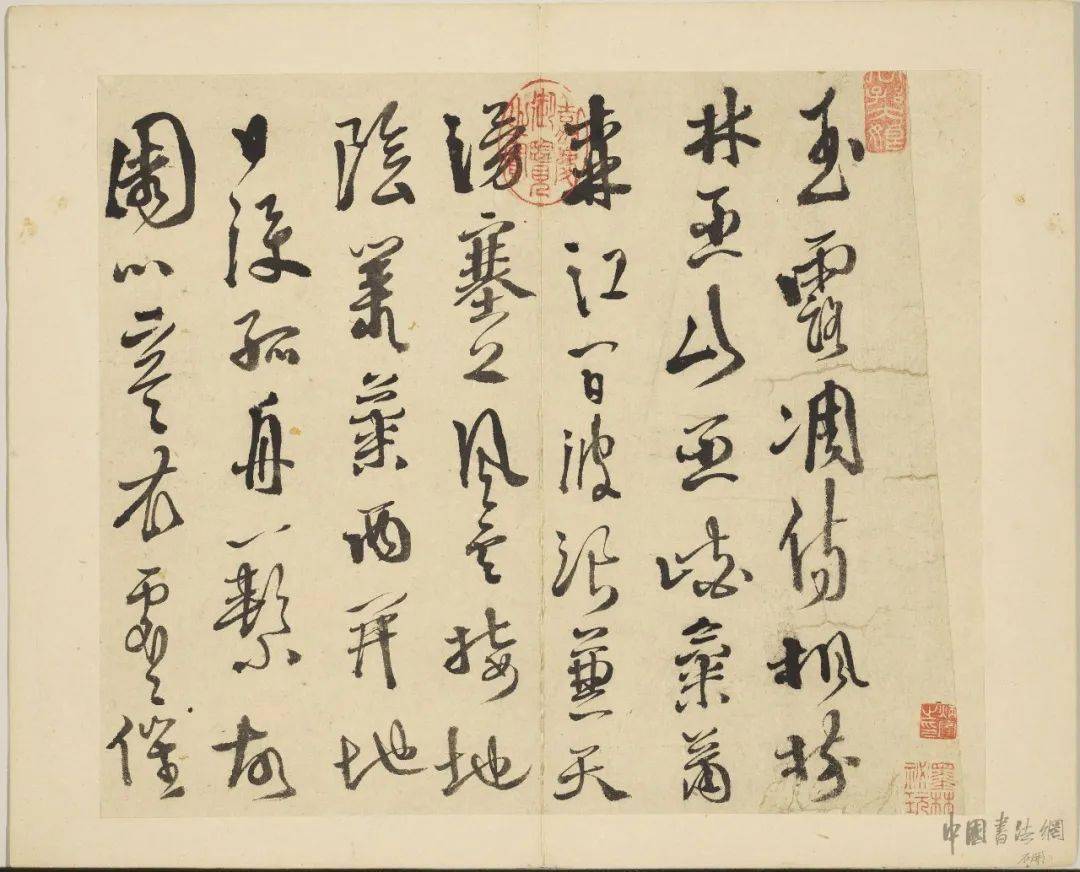 玉露凋傷楓樹
林巫山巫峽氣蕭
森江間波浪兼天
湧塞上風雲接地
陰叢菊兩開地
日淚孤舟一繫故
園心寒衣處處催
嘉慶御覽之寶
墨林秘玩
中國書法網